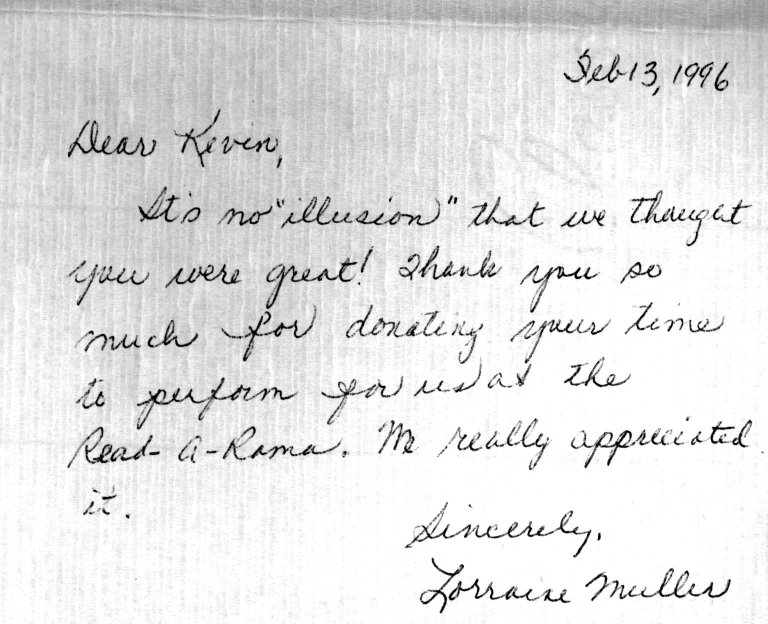 Feb 13, 1996
Dear Kevin,
It's no "illusion" that we thought
you were great! Thank you so
much for donating your time
to perform for us at the
Read-A-Rama. We really appreciated
it.
Sincerely,
Lorraine Muller